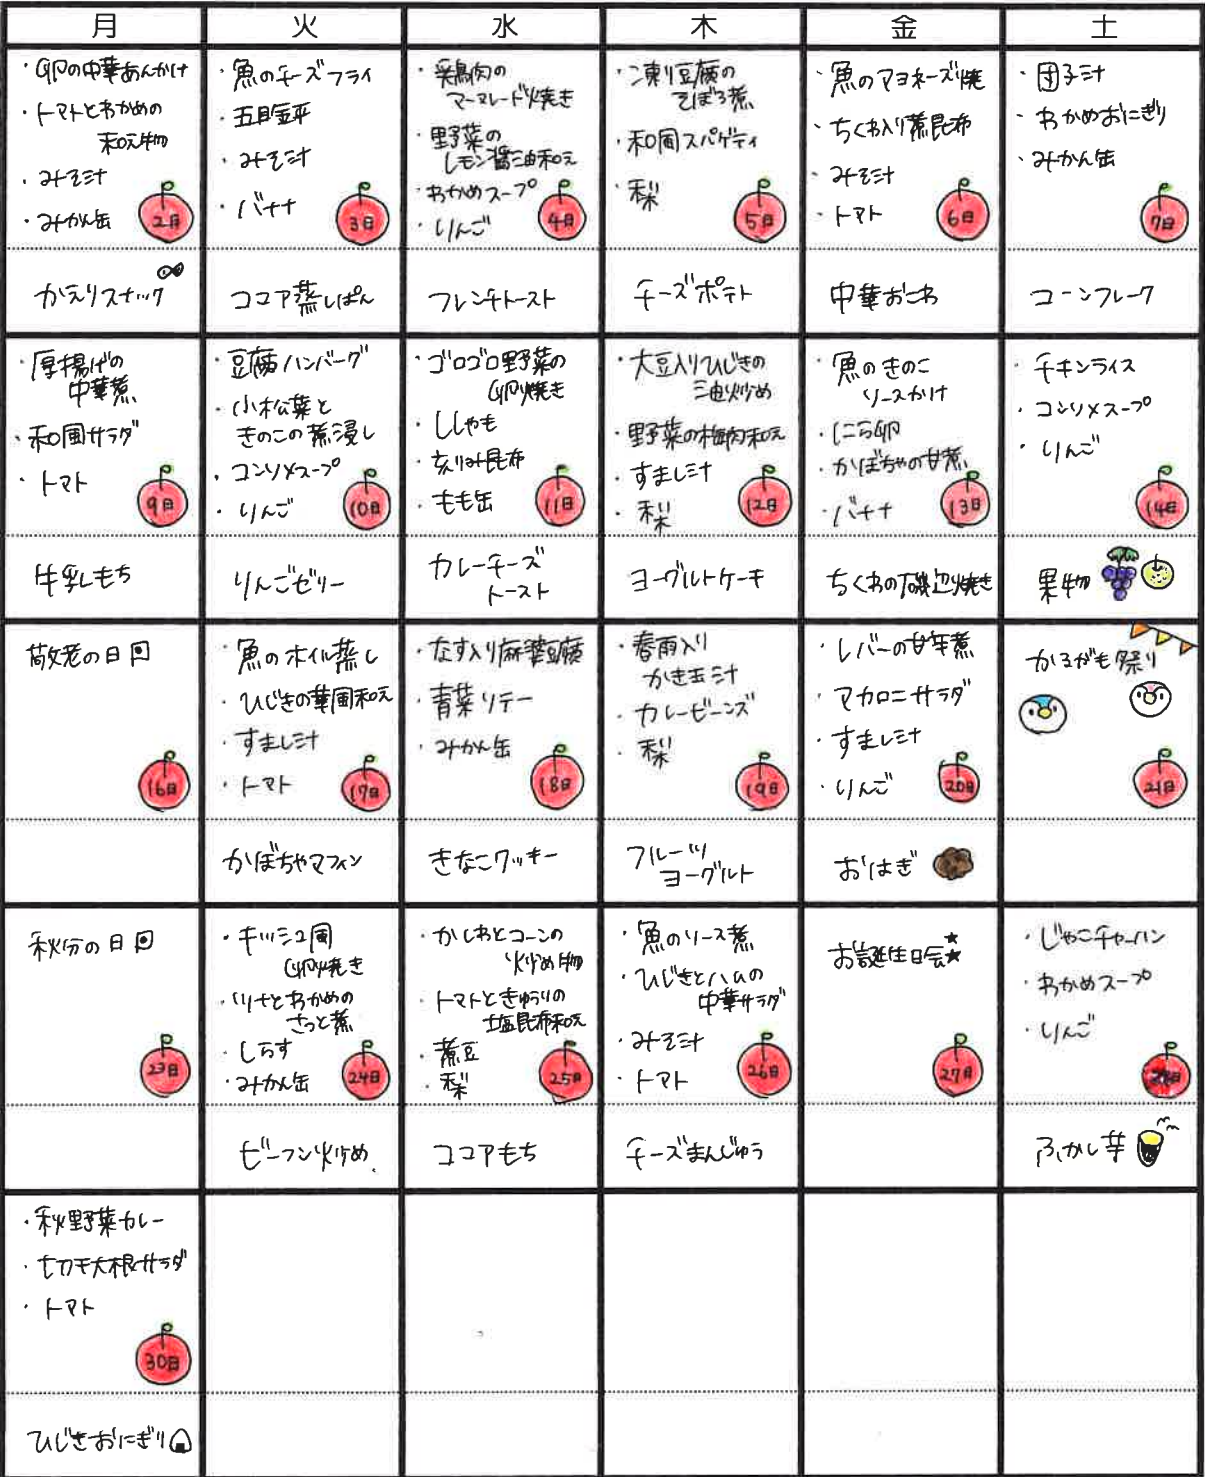 月 火 水 木 金 土
・卵の中華あんかけ
・トマトとわかめの
和え物
・みそ汁
・みかん缶
2日
・魚のチーズフライ
・五目金平
・みそ汁
・バナナ
3日
・鶏肉の
マーマレード焼き
・野菜の
レモン醤油和え
・わかめスープ
・りんご
4日
・凍り豆腐の
そぼろ煮
・和風スパゲティ
・梨
5日
・魚のマヨネーズ焼
・ちくわ入り煮昆布
・みそ汁
・トマト
6日
・団子汁
・わかめおにぎり
・みかん缶
7日
かえりスナック
ココア蒸しぱん
フレンチトースト
チーズポテト
中華おこわ
コーンフレーク
・厚揚げの
中華煮
・和風サラダ
・トマト
9日
・豆腐ハンバーグ
・小松菜と
きのこの煮浸し
・コンソメスープ
・りんご
10日
・ゴロゴロ野菜の
卵焼き
・ししゃも
・刻み昆布
・もも缶
11日
・大豆入りひじきの
油炒め
・野菜の梅肉和え
・すまし汁
・梨
12日
・魚のきのこ
ソースかけ
・にら卵
・かぼちゃの甘煮
・バナナ
13日
・チキンライス
・コンソメスープ
・りんご
14日
牛乳もち
りんごゼリー
カレーチーズ
トースト
ヨーグルトケーキ
ちくわの磯辺焼き
果物
敬老の日
16日
・魚のホイル蒸し
・ひじきの華風和え
・すまし汁
・トマト
17日
・なす入り麻婆豆腐
・青菜ソテー
・みかん缶
18日
・春雨入り
かき玉汁
・カレービーンズ
・梨
19日
・レバーの甘辛煮
・マカロニサラダ
・すまし汁
・りんご
20日
かるがも祭り
21日
かぼちゃマフィン
きなこクッキー
フルーツ
ヨーグルト
おはぎ
秋分の日
23日
・キッシュ風
卵焼き
・ツナとわかめの
さっと煮
・しらす
・みかん缶
24日
・かしわとコーンの
炒め物
・トマトときゅうりの
塩昆布和え
・煮豆
・梨
25日
・魚のソース煮
・ひじきとハムの
中華サラダ
・みそ汁
・トマト
26日
お誕生日会
27日
・じゃこチャーハン
・わかめスープ
・りんご
28日
ビーフン炒め
ココアもち
チーズまんじゅう
ふかし芋
・秋野菜カレー
・切干大根サラダ
・トマト
30日
ひじきおにぎり